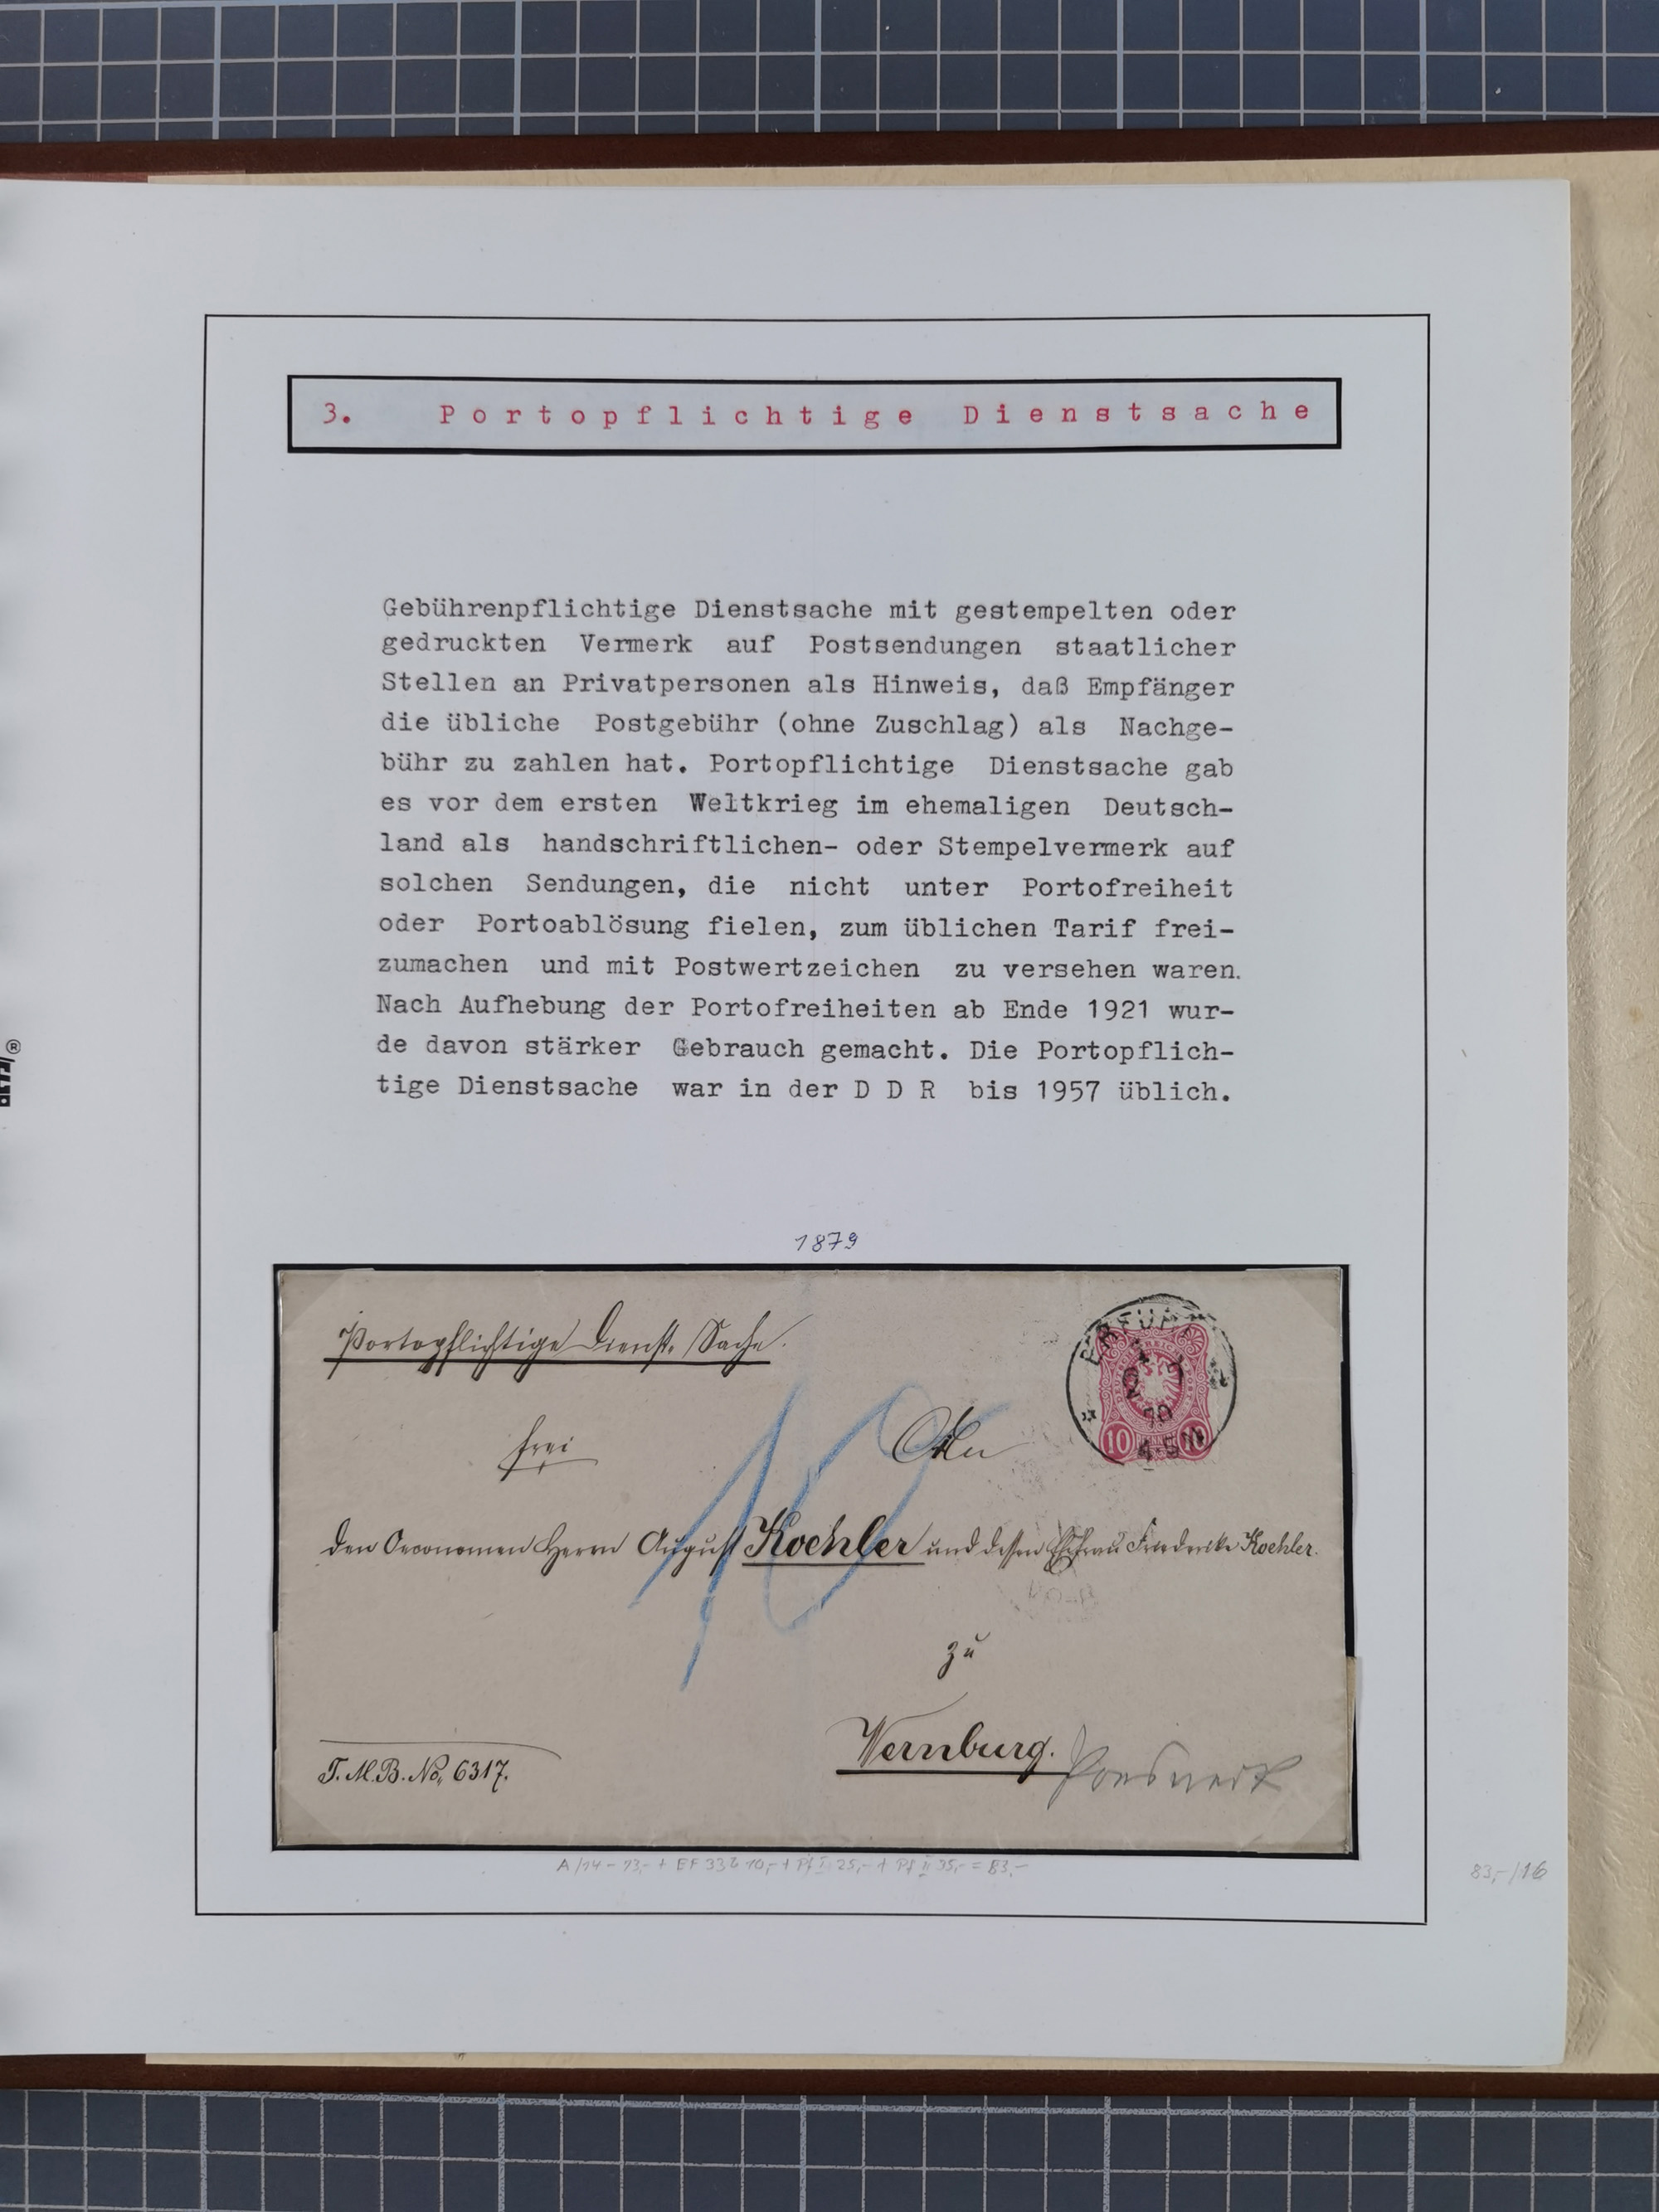 3. Portopflichtige Dienstsache
Gebührenpflichtige Dienstsache mit gestempelten oder
gedruckten Vermerk auf Postsendungen staatlicher
Stellen an Privatpersonen als Hinweis, daß Empfänger
die übliche Postgebühr (ohne Zuschlag) als Nachge-
bühr zu zahlen hat. Portopflichtige Dienstsache gab
es vor dem ersten Weltkrieg im ehemaligen Deutsch-
land als handschriftlichen- oder Stempelvermerk auf
solchen Sendungen, die nicht unter Portofreiheit
oder Portoablösung fielen, zum üblichen Tarif frei-
zumachen und mit Postwertzeichen zu versehen waren.
Nach Aufhebung der Portofreiheiten ab Ende 1921 wur-
de davon stärker Gebrauch gemacht. Die Portopflich-
tige Dienstsache war in der D D R bis 1957 üblich.
1879
Portopflichtige Dienst-Sache.
ERFURT
10 10
frei
An
den Oeconomen Herrn August Koehler und dessen Ehefrau Friederike Koehler.
zu
Wernburg.
J. M. B. No. 6317.
83,-/16